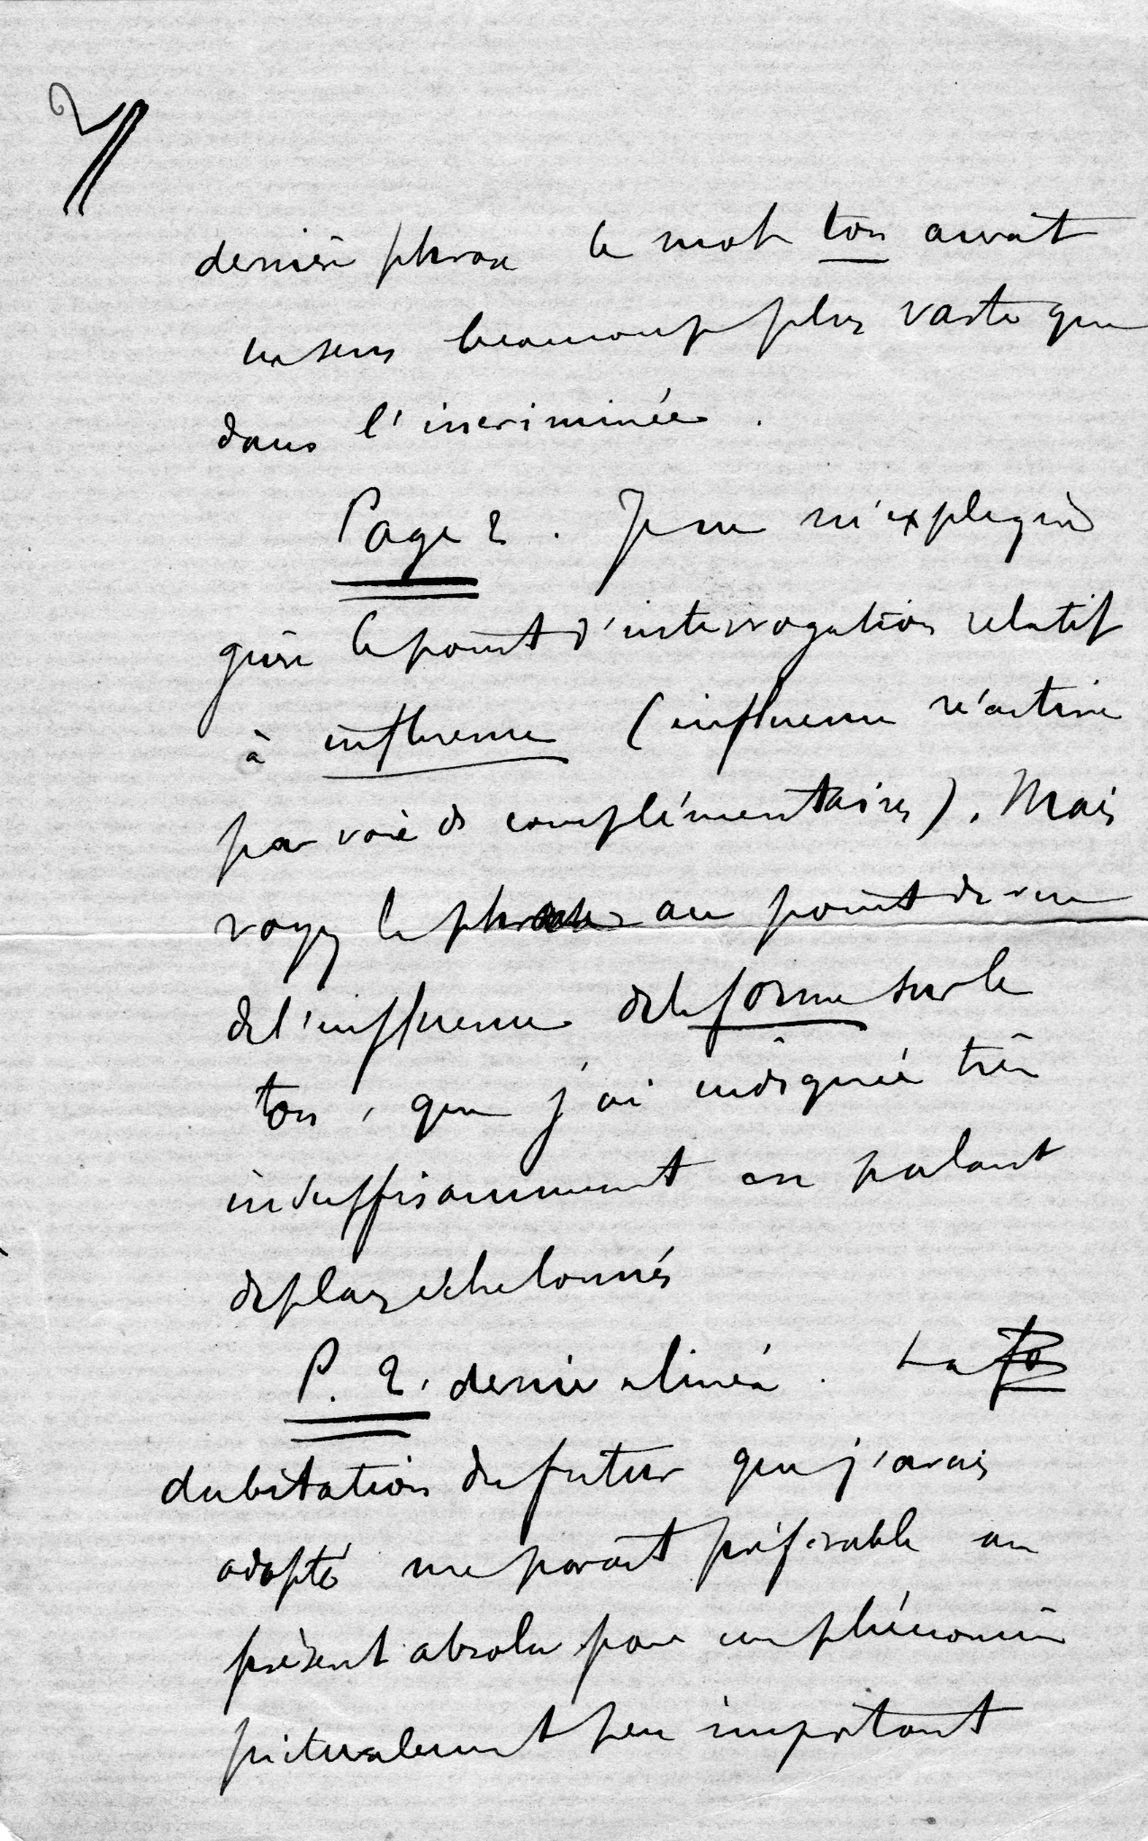 2
dernière phrase le mot ton aurait
un sens beaucoup plus vaste que
dans l'incriminée.
Page 2. Je ne m'explique
guère le point d'interrogation relatif
à influence (influence réactive
par voie de complémentaires). Mais
voyez la phrase au point de vue
de l'influence de la forme sur le
ton, que j'ai indiquée très
insuffisamment en parlant
de plans échelonnés
P. 2. dernier alinéa. La
dubitation du futur que j'avais
adopté me paraît préférable au
présent absolu pour un phénomène
picturalement peu important